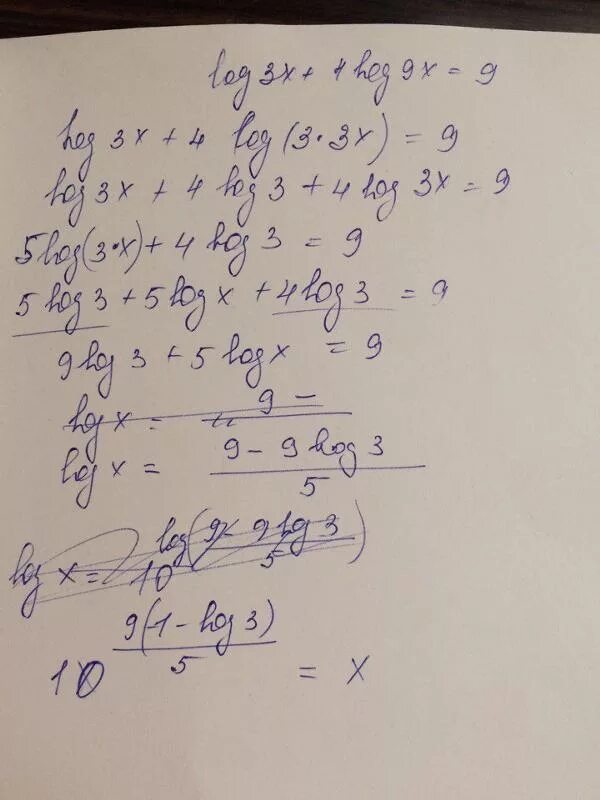 log 3x + 4 log 9x = 9
log 3x + 4 log (3·3x) = 9
log 3x + 4 log 3 + 4 log 3x = 9
5 log (3·x) + 4 log 3 = 9
5 log 3 + 5 log x + 4 log 3 = 9
9 log 3 + 5 log x = 9
log x = 9 -
log x = 9 - 9 log 3 / 5
log x = 10 log( 9 - 9 log 3 / 5 )
10^(9(1 - log 3) / 5) = x